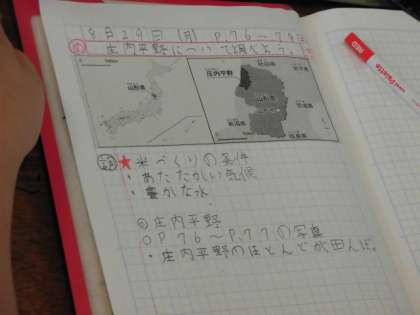 8月29日(月) P.76~7
庄内平野について調べよう。
山形県
庄内平野
山形県
新潟県
宮城県
福島県
RED
★米づくりの条件
・あたたかい気候
・豊かな水
◎庄内平野
○P76~P.77の写真
・庄内平野のほとんどが田んぼ。